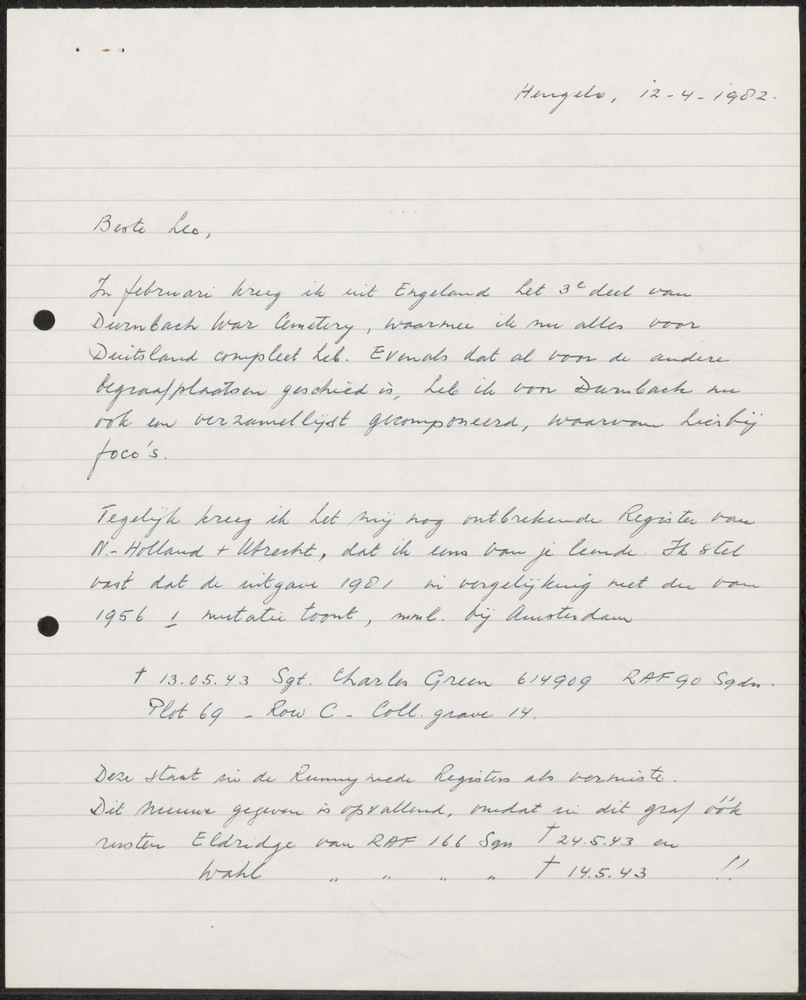 Hengelo, 12-4-1982.
Beste Leo,
In februari kreeg ik uit Engeland het 3e deel van
Durnbach War Cemetery, waarmee ik nu alles voor
Duitsland compleet heb. Evenals dat al voor de andere
begraafplaatsen geschied is, heb ik voor Durnbach nu
ook een verzamellijst gecomponeerd, waarvan hierbij
foco's.
Tegelijk kreeg ik het mij nog ontbrekende Register van
N.-Holland + Utrecht, dat ik eens van je leende. Ik stel
vast dat de uitgave 1981 in vergelijking met die van
1956 1 mutatie toont, nml. bij Amsterdam
† 13.05.43 Sgt. Charles Green 614909 RAF 90 Sqdn.
Plot 69 - Row C - Coll. grave 14.
Deze staat in de Runnymede Registers als vermiste.
Dit nieuwe gegeven is opvallend, omdat in dit graf óók
rusten Eldridge van RAF 166 Sqn † 24.5.43 en
Wahl " " " " † 14.5.43 !!